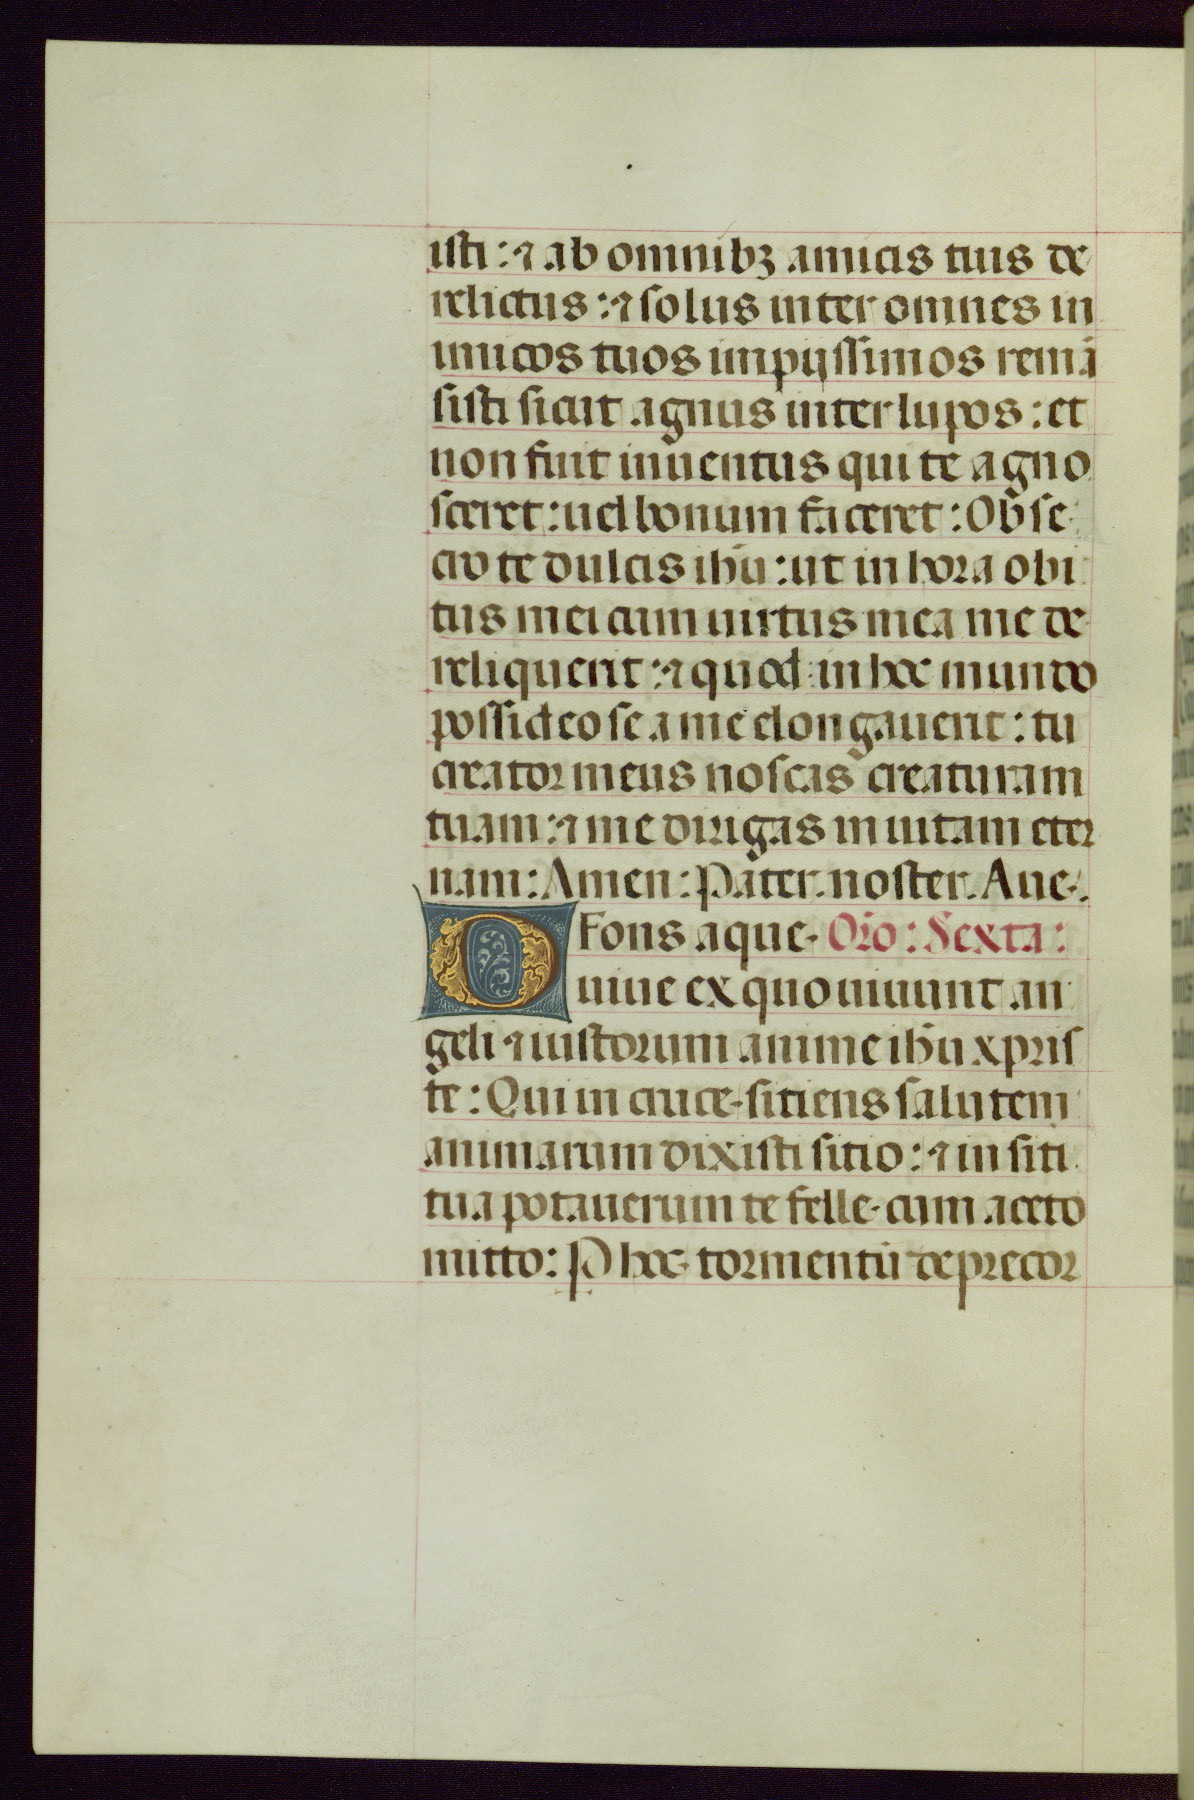 isti : ⁊ ab omnibꝫ amicis tuis de
relictus : ⁊ solus inter omnes in
imicos tuos impijssimos remā
sisti sicut agnus inter lupos : et
non fuit inuentus qui te agno
sceret : uel bonum faceret : Obse
cro te dulcis ih̄u : ut in hora obi
tus mei cum uirtus mea me de
reliquerit : ⁊ quod in hoc mundo
possideo se a me elongauerit : tu
creator meus noscas creaturam
tuam : ⁊ me dirigas in uitam eter
nam : Amen : Pater. noster. Aue.
O fons aque. Or̄o : Sexta :
uiue ex quo uiuunt an
geli ⁊ iustorum anime ih̄u xpris
te : Qui in cruce sitiens salutem
animarum dixisti sitio : ⁊ in siti
tua potauerum te felle cum aceto
mitto : ꝑ hoc tormentū deprecor